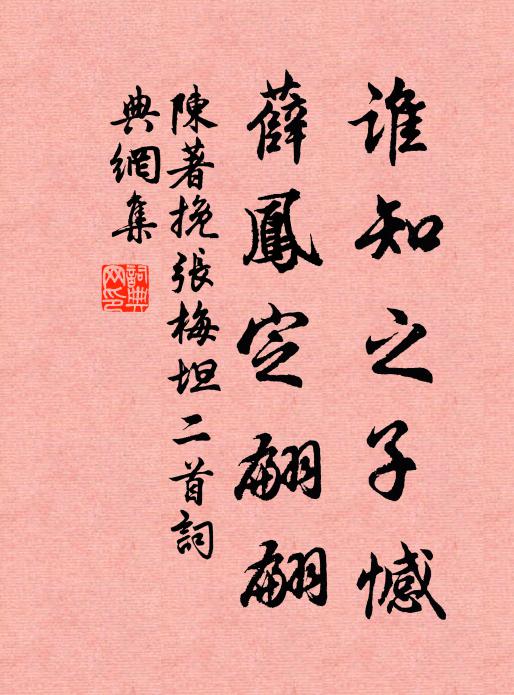 誰知之子憾
薛鳳定翩翩
陳著挽張梅坦二首詞
典網集
詞典網印